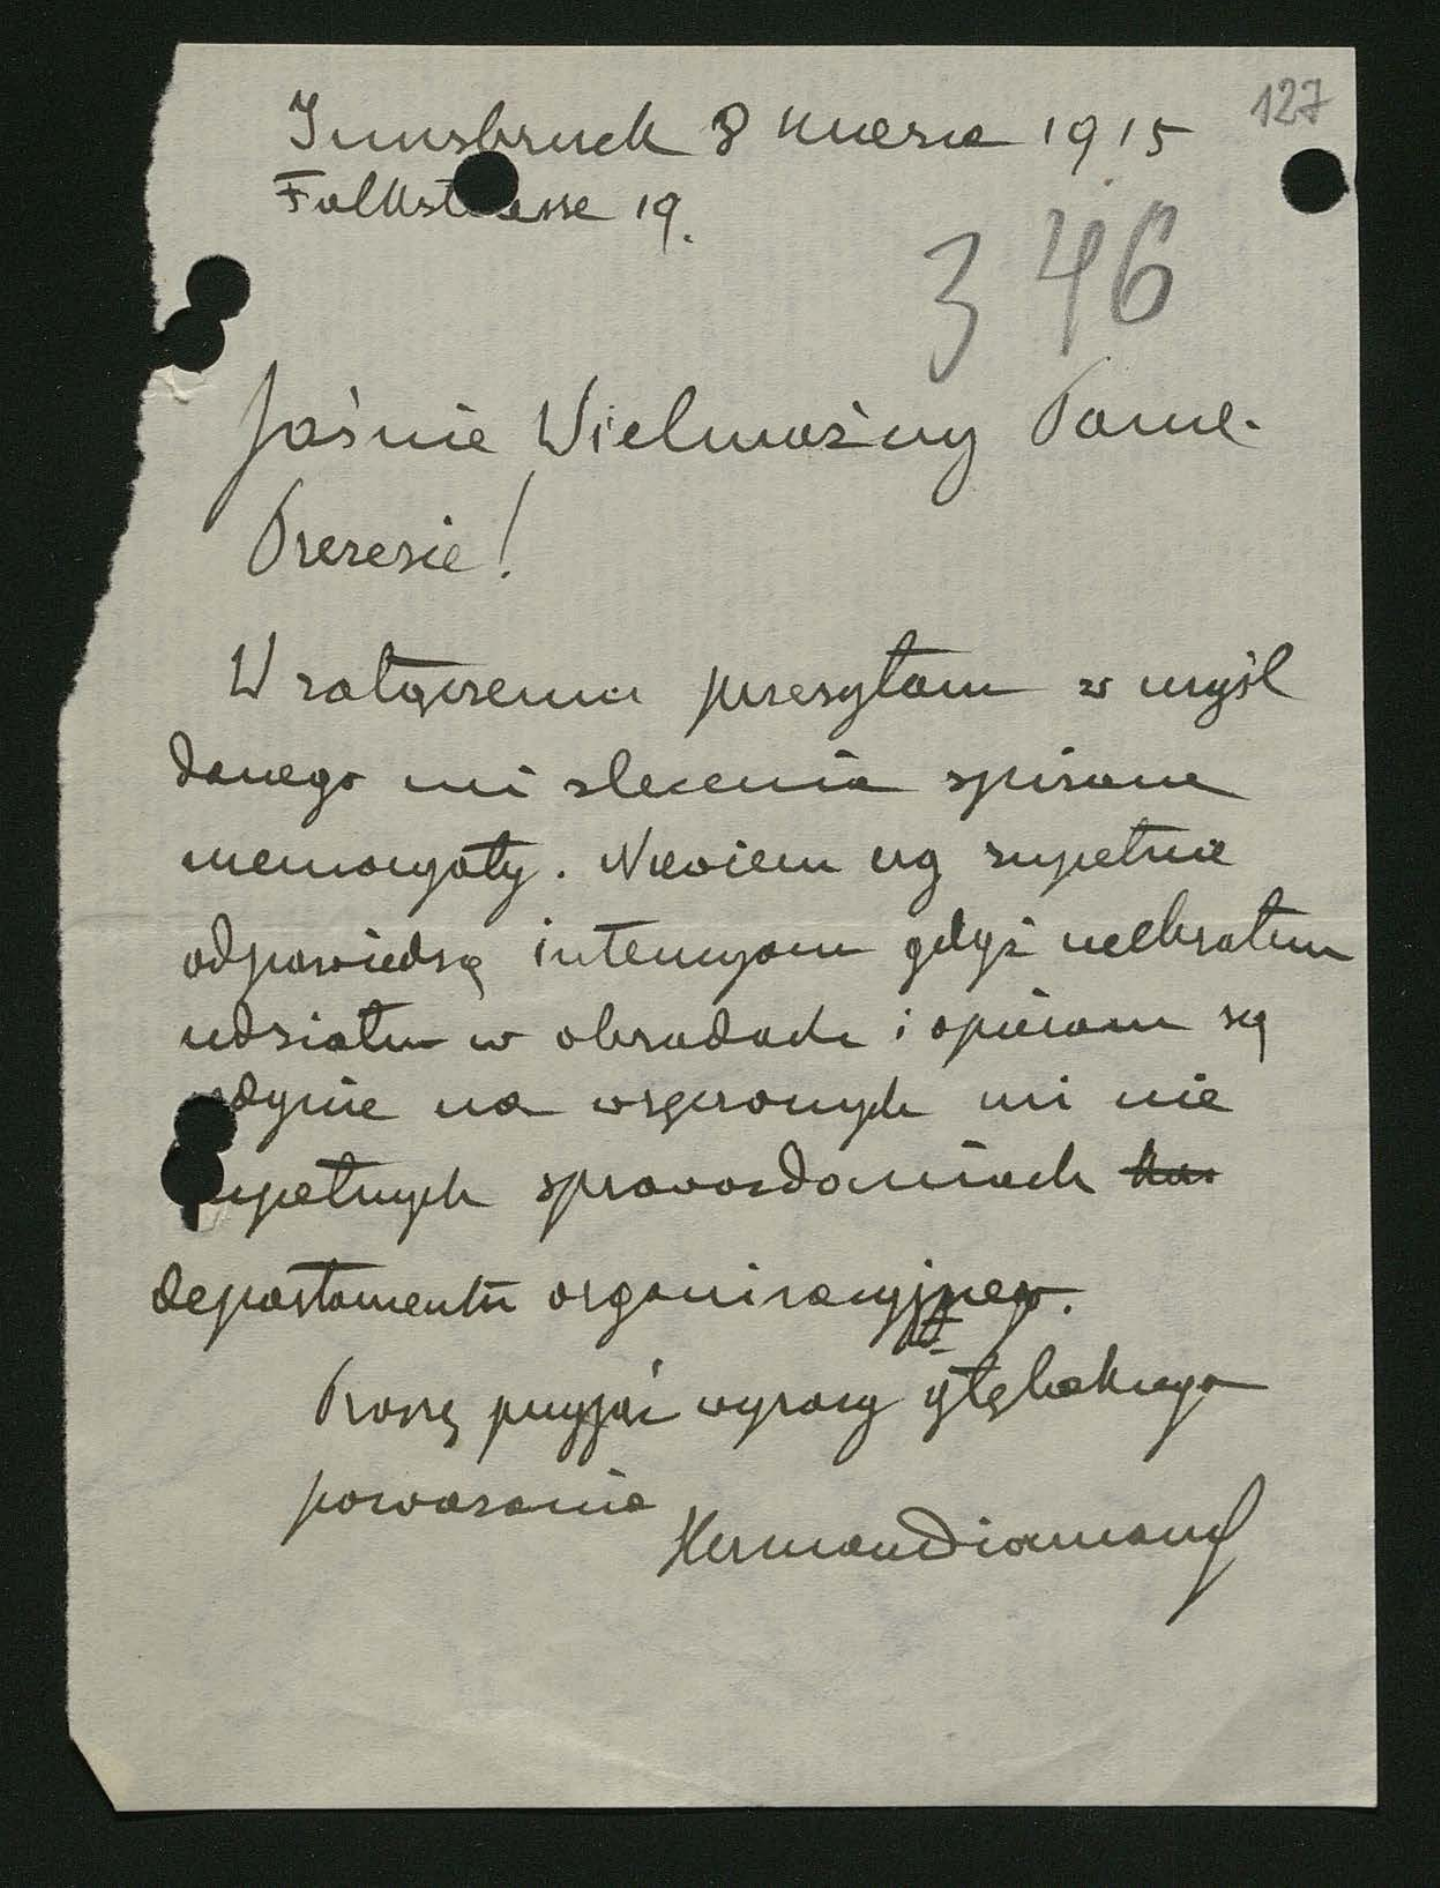 127
Innsbruck 8 marca 1915
Falkstrasse 19.
346
Jaśnie Wielmożny Panie
Prezesie!
W załączeniu przesyłam w myśl
danego mi zlecenia spisane
memoryały. Niewiem czy zupełnie
odpowiedzą intencyom gdyż niebrałem
udziału w obradach i opieram się
jedynie na wręczonych mi nie
zupełnych sprawozdaniach
departamentu organizacyjnego.
Proszę przyjąć wyrazy głębokiego
poważania
Herman Diamand